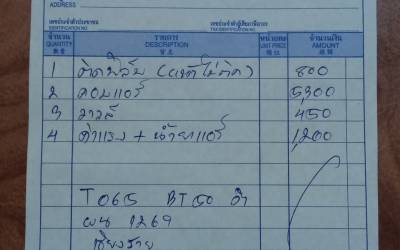 ADDRESS
เลขประจำตัวประชาชน เลขประจำตัวผู้เสียภาษีอากร
IDENTIFICATION NO. TAX IDENTIFICATION NO.
จำนวน รายการ หน่วยละ จำนวนเงิน
QUANTITY DESCRIPTION UNIT PRICE AMOUNT
數量 貨名
1 ติดฟิล์ม 800
2 คอมแอร์ 5,300
3 วาล์ว 450
4 ค่าแรง + น้ำยาแอร์ 1,200
T065 BT50 ดำ
ผน 1269
เชียงราย